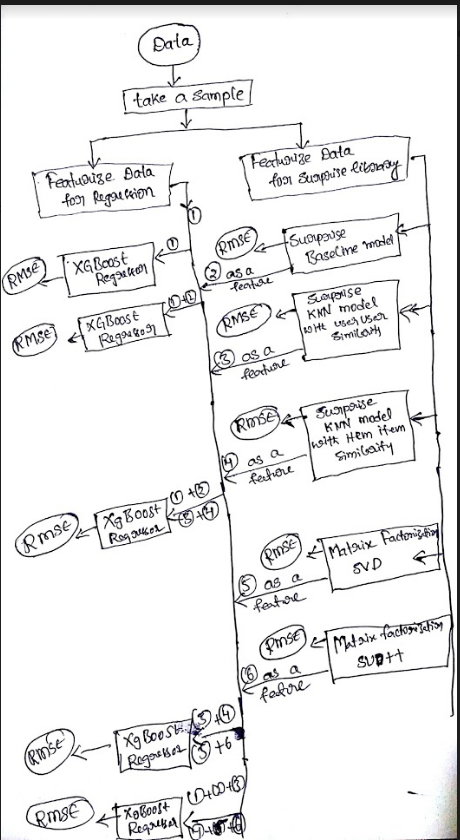 Data
take a sample
Featurize Data
for Regression
Featurize Data
for Surprise library
①
RMSE
XGBoost
Regressor
①
RMSE
Surprise
Baseline model
② as a
feature
RMSE
XGBoost
Regressor
①+②
RMSE
Surprise
KNN model
with user user
Similarity
③ as a
feature
RMSE
Surprise
KNN model
with item item
Similarity
④ as a
feature
RMSE
XgBoost
Regressor
①+②
③+④
RMSE
Matrix Factorisation
SVD
⑤ as a
feature
RMSE
Matrix factorisation
SVD++
⑥ as a
feature
RMSE
XgBoost
Regressor
③+④
⑤+6
RMSE
XgBoost
Regressor